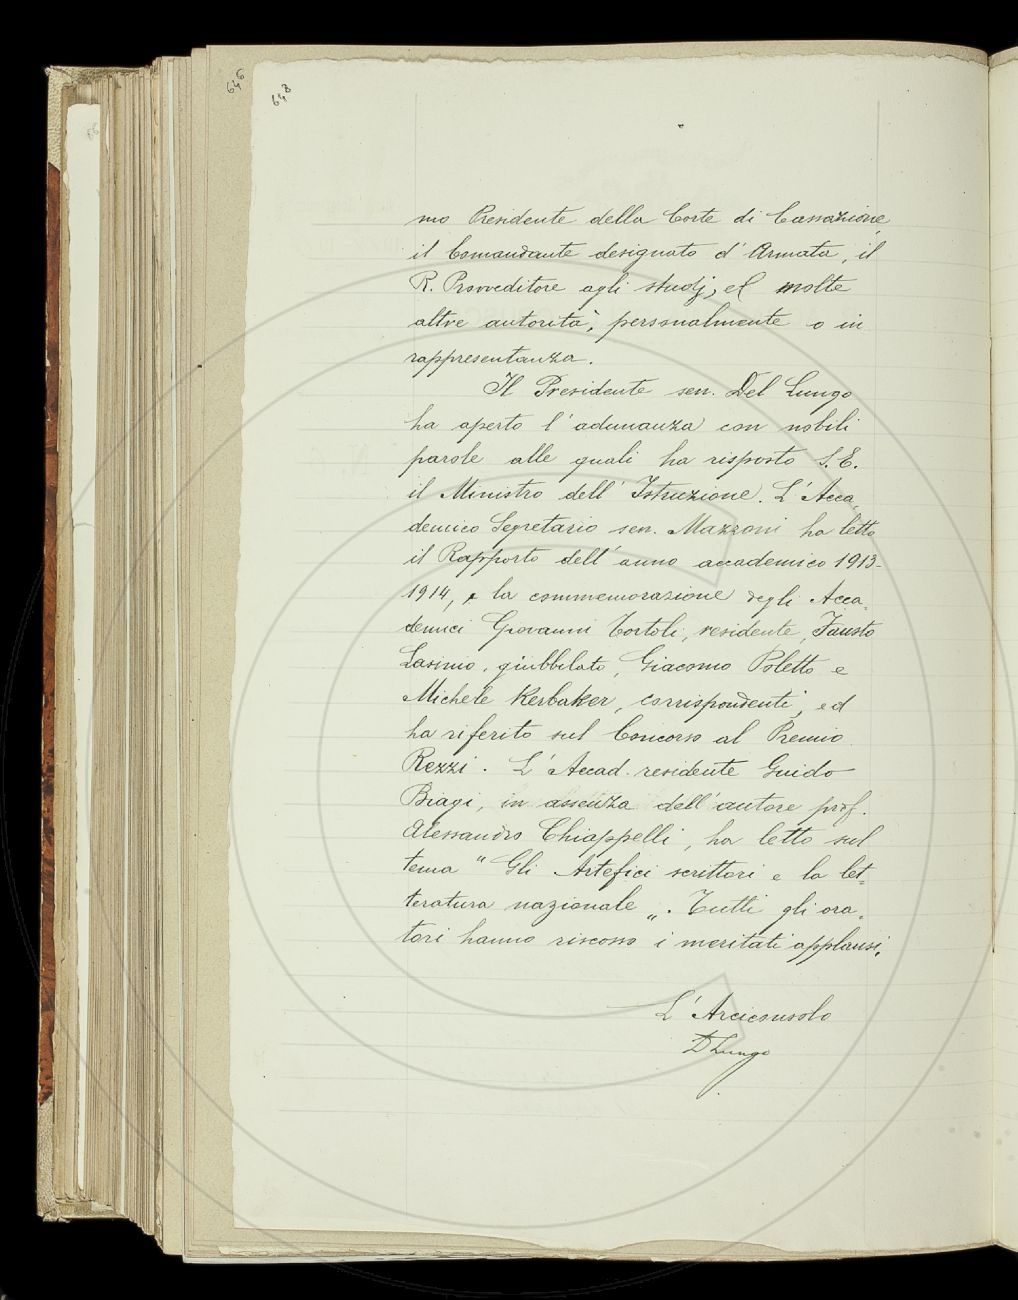 646
648
mo Presidente della Corte di Cassazione,
il Comandante designato d'Armata, il
R. Provveditore agli studj, ed molte
altre autorità, personalmente o in
rappresentanza.
Il Presidente sen. Del Lungo
ha aperto l'adunanza con nobili
parole alle quali ha risposto S. E.
il Ministro dell'Istruzione. L'Acca-
demico Segretario sen. Mazzoni ha letto
il Rapporto dell'anno accademico 1913-
1914, e la commemorazione degli Acca-
demici Giovanni Tortoli, residente, Fausto
Lasinio, giubbilato, Giacomo Poletto e
Michele Kerbaker, corrispondenti, ed
ha riferito sul Concorso al Premio
Rezzi. L'Accad. residente Guido
Biagi, in assenza dell'autore prof.
Alessandro Chiappelli, ha letto sul
tema "Gli Artefici scrittori e la let-
teratura nazionale„. Tutti gli ora-
tori hanno riscosso i meritati applausi.
L'Arciconsolo
DLungo